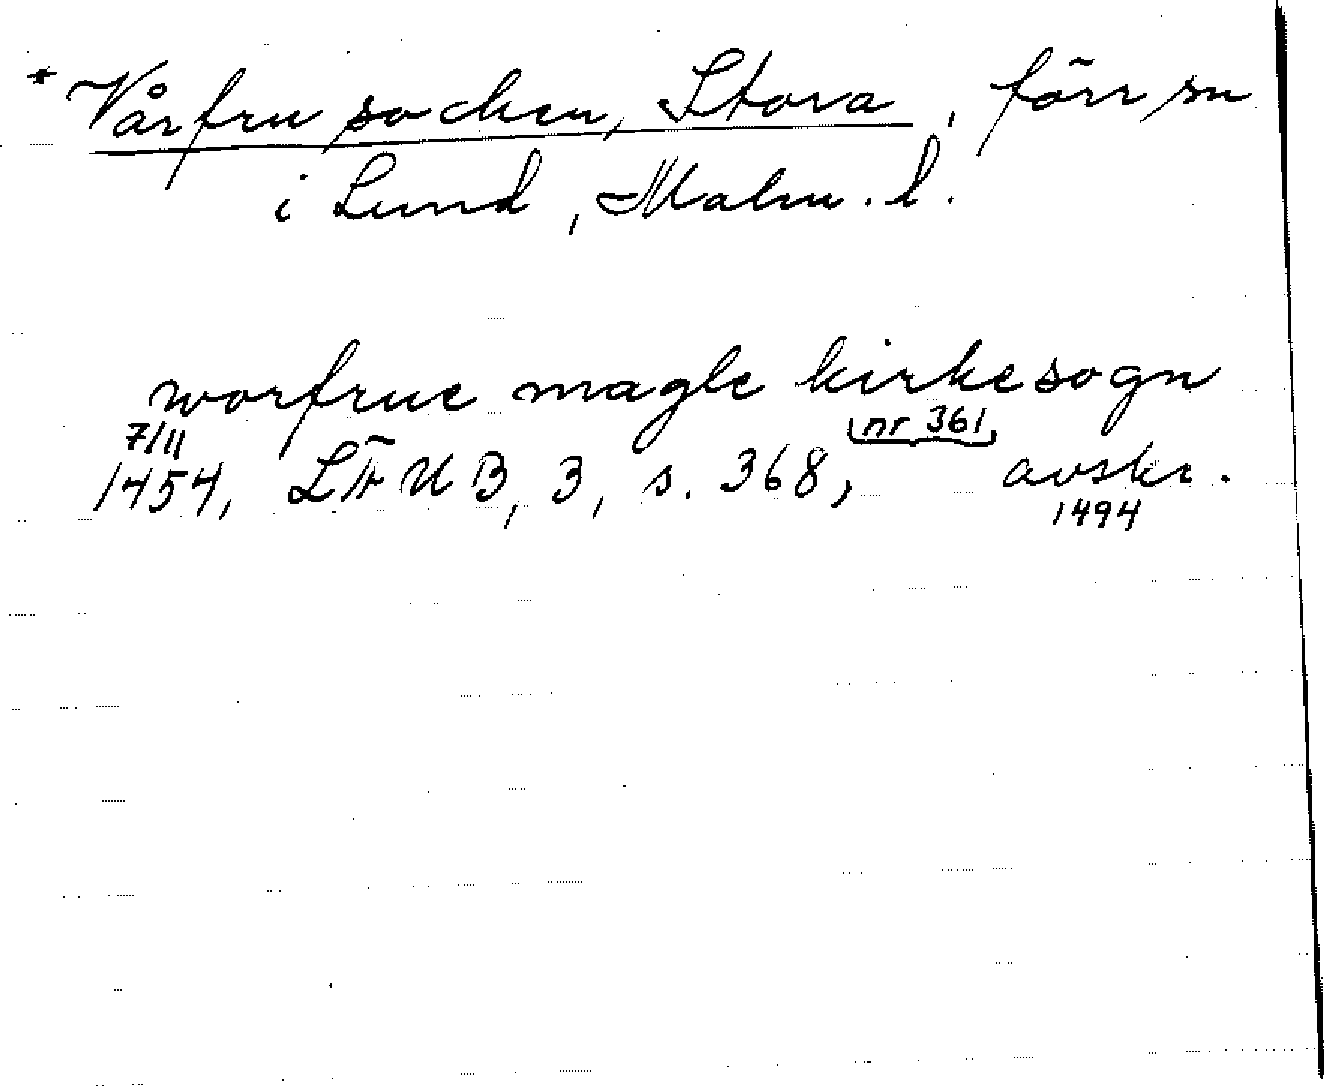 * Vårfru socken, Stora, förr sn
i Lund, Malm. l.
worfrue magle kirkesogn
7/11 nr 361
1454, LÄUB, 3, s. 368, avskr.
1494